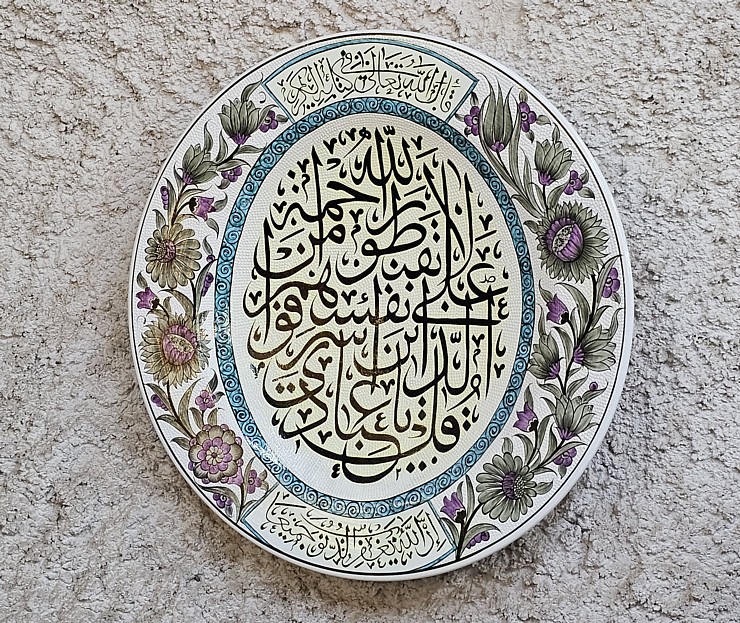 قال الله تعالى في كتابه الكريم
قل يا عبادي الذين أسرفوا على أنفسهم لا تقنطوا من رحمة الله
إن الله يغفر الذنوب جميعا